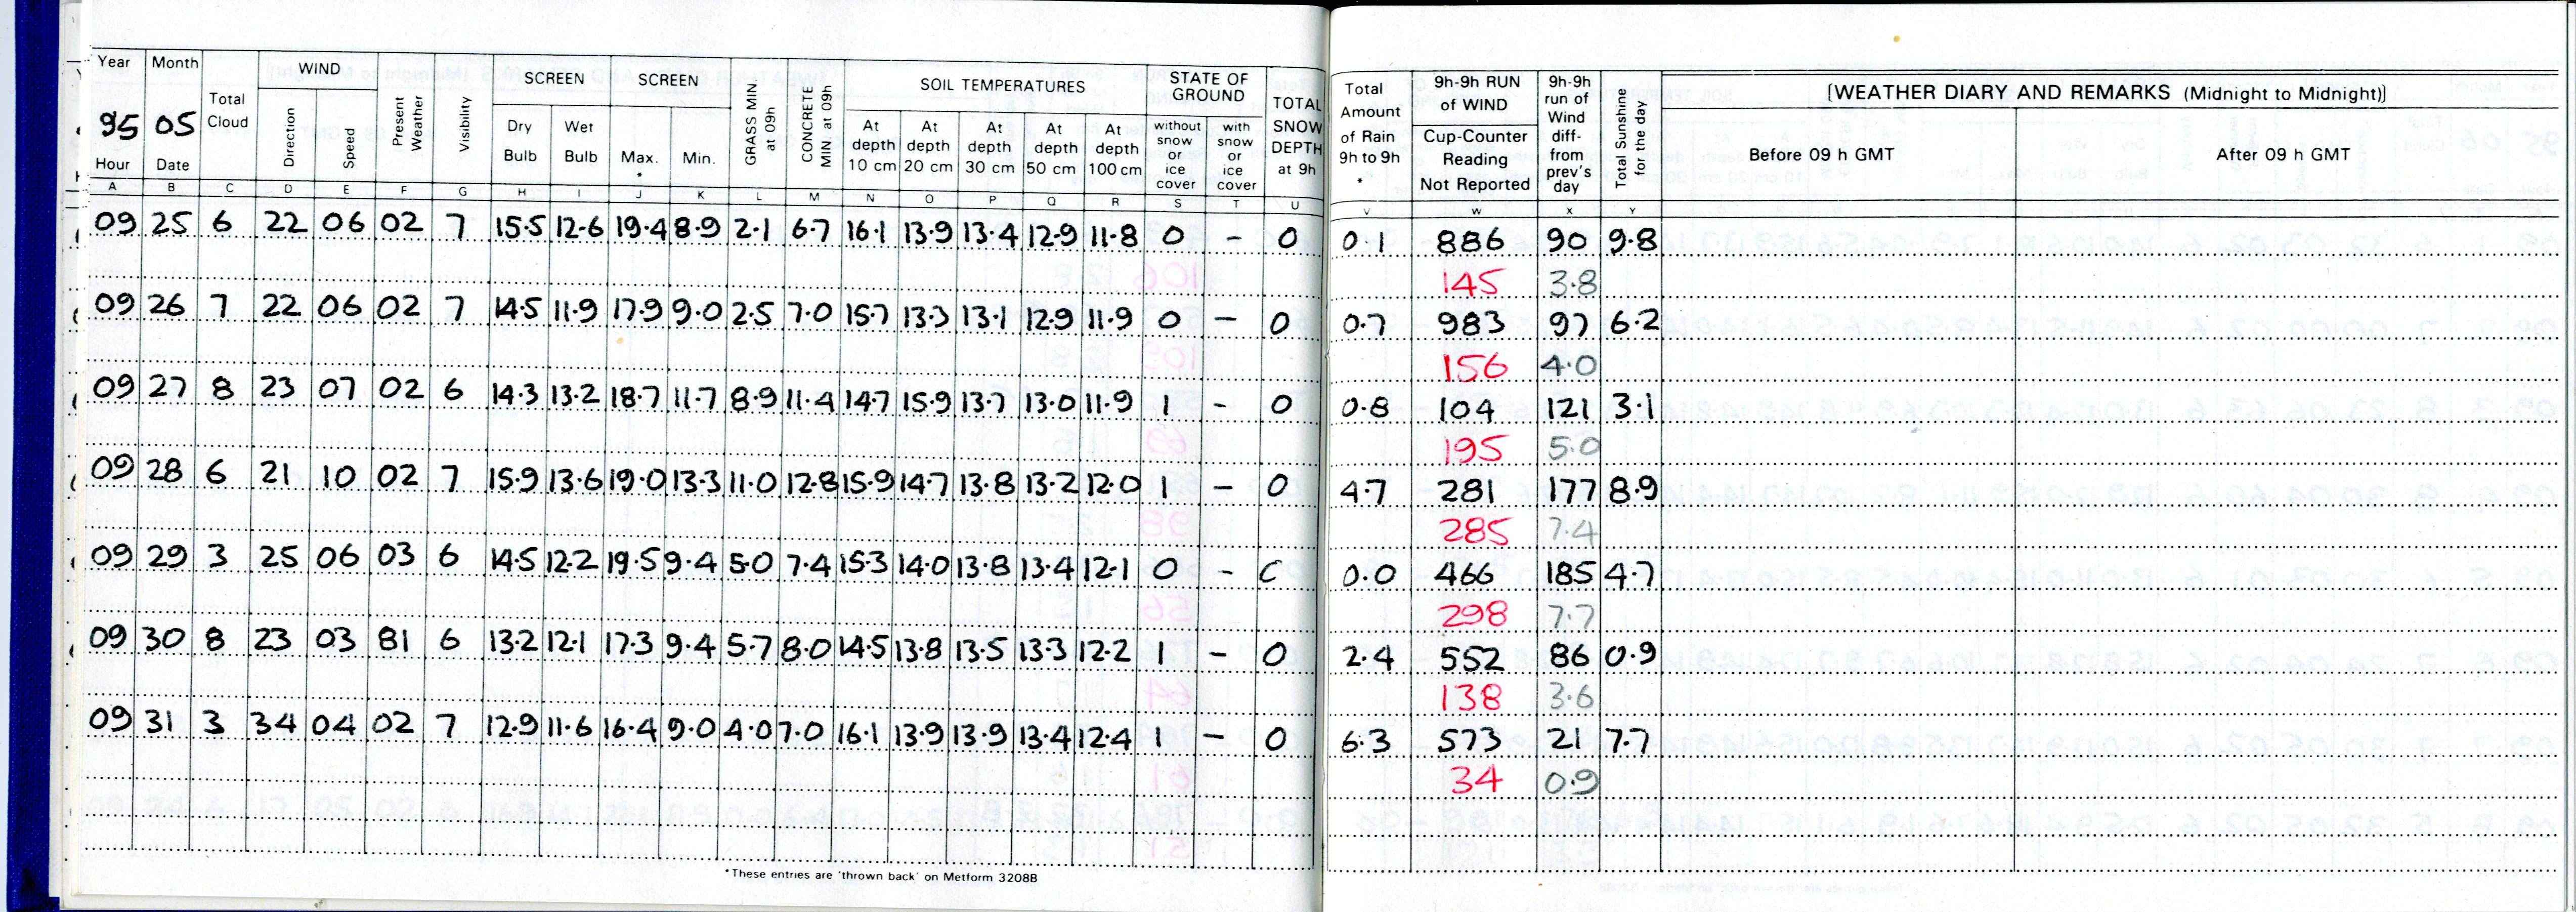 Year Month Total Cloud WIND Present Weather Visibility SCREEN SCREEN GRASS MIN at 09h CONCRETE MIN. at 09h SOIL TEMPERATURES STATE OF GROUND TOTAL SNOW DEPTH at 9h Total Amount of Rain 9h to 9h * 9h-9h RUN of WIND 9h-9h run of Wind diff- from prev's day Total Sunshine for the day [WEATHER DIARY AND REMARKS (Midnight to Midnight)]
95 05 Direction Speed Dry Bulb Wet Bulb Max. * Min. At depth 10 cm At depth 20 cm At depth 30 cm At depth 50 cm At depth 100 cm without snow or ice cover with snow or ice cover Cup-Counter Reading Not Reported Before 09 h GMT After 09 h GMT
Hour Date
A B C D E F G H I J K L M N O P Q R S T U V W X Y
09 25 6 22 06 02 7 15.5 12.6 19.4 8.9 2.1 6.7 16.1 13.9 13.4 12.9 11.8 0 - 0 0.1 886 90 9.8
145 3.8
09 26 7 22 06 02 7 14.5 11.9 17.9 9.0 2.5 7.0 15.7 13.3 13.1 12.9 11.9 0 - 0 0.7 983 97 6.2
156 4.0
09 27 8 23 07 02 6 14.3 13.2 18.7 11.7 8.9 11.4 14.7 15.9 13.7 13.0 11.9 1 - 0 0.8 104 121 3.1
195 5.0
09 28 6 21 10 02 7 15.9 13.6 19.0 13.3 11.0 12.8 15.9 14.7 13.8 13.2 12.0 1 - 0 4.7 281 177 8.9
285 7.4
09 29 3 25 06 03 6 14.5 12.2 19.5 9.4 5.0 7.4 15.3 14.0 13.8 13.4 12.1 0 - 0 0.0 466 185 4.7
298 7.7
09 30 8 23 03 81 6 13.2 12.1 17.3 9.4 5.7 8.0 14.5 13.8 13.5 13.3 12.2 1 - 0 2.4 552 86 0.9
138 3.6
09 31 3 34 04 02 7 12.9 11.6 16.4 9.0 4.0 7.0 16.1 13.9 13.9 13.4 12.4 1 - 0 6.3 573 21 7.7
34 0.9
*These entries are 'thrown back' on Metform 3208B